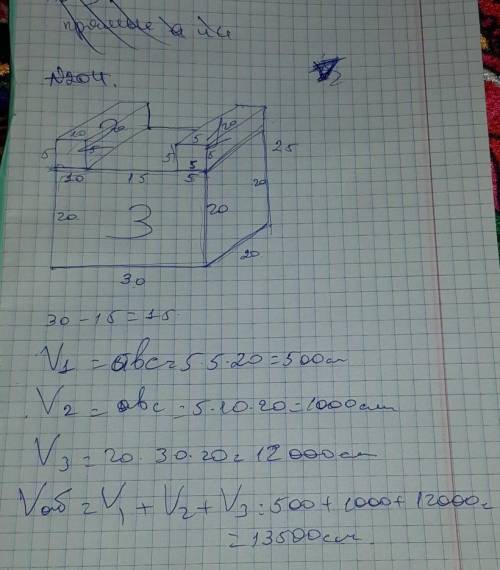 прямые а
№204.
20 20 5 20
5 5 5 5 25
10 15 5
20 3 20 20
30 20
30 - 15 = 15
V1 = abc = 5 5 · 20 = 500см
V2 = abc = 5 · 10 · 20 = 1000см
V3 = 20 · 30 · 20 = 12000см
Vоб = V1 + V2 + V3 = 500 + 1000 + 12000 =
= 13500см.